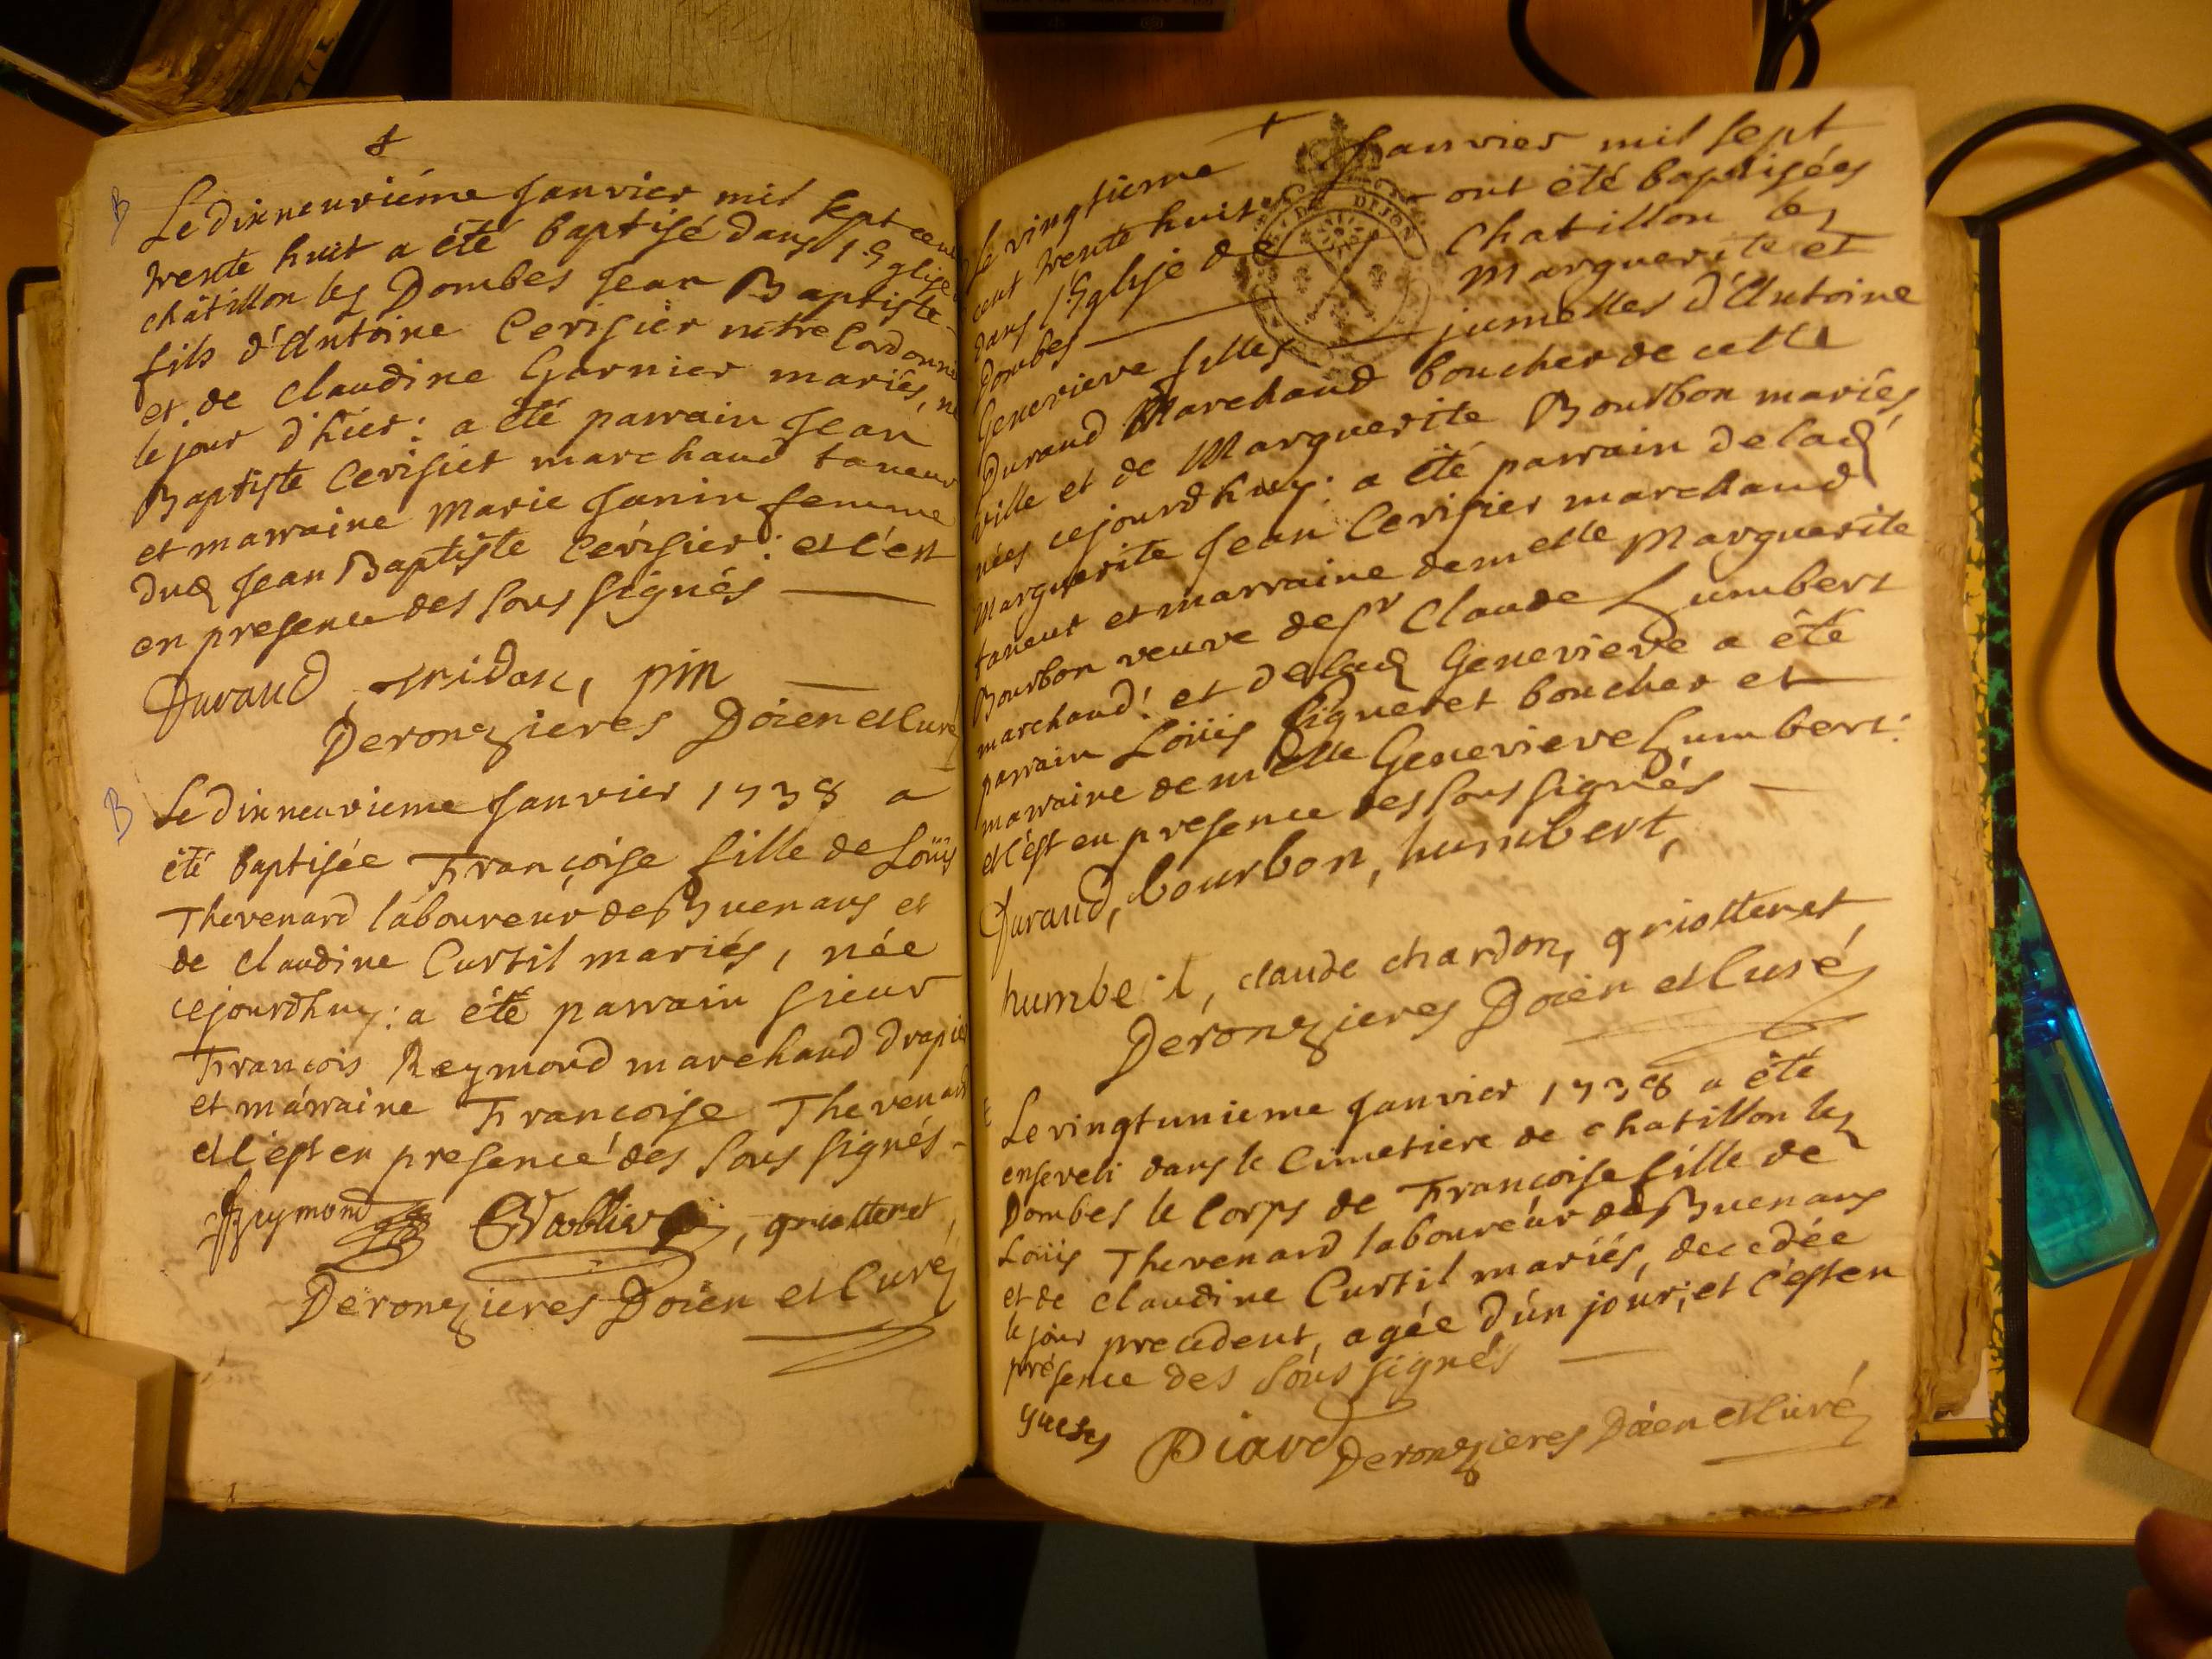 B
Le dixneuviéme Janvier mil sept cent
trente huit a été baptisé dans l'Eglise
châtillon les Dombes Jean Baptiste
fils d'Antoine Cerisier mtre Cordonnie
et de Claudine Garnier mariés, né
le jour d'hier: a été parrain Jean
Baptiste Cerisier marchand taneur
et marraine Marie Janin femme
dud Jean Baptiste Cerisier: et c'est
en presence des sous signés
Durand, pin
Deronzières Doien et Curé
B
Le dixneuvieme Janvier 1738 a
été baptisée Françoise fille de Loüis
Thevenard laboureur de Buenans et
de Claudine Curtil mariés, née
cejourdhuy: a été parrain sieur
François Reymond marchand drapier
et marraine Francoise Thevenard
et c'est en presence des sous signés
Reymond, griotteret,
Deronzieres Doien et Curé
Le vingtieme Janvier mil sept
cent trente huit ont été baptisées
dans l'Eglise de Chatillon les
Dombes Marguerite et
Genevieve filles jumelles d'Antoine
Durand Marchand boucher de cette
ville et de Marguerite Bourbon mariés
nées cejourdhuy: a été parrain de lad
Marguerite Jean Cerisier marchand
taneur et marraine demelle Marguerite
Bourbon veuve de sr Claude Humbert
marchand: et de lad Genevieve a été
parrain Loüis Figueret boucher et
marraine demelle Genevieve Humbert:
et c'est en presence des sous signés
Durand, bourbon, humbert,
humbert, claude chardon, griotteret
Deronzieres Doien et Curé
Le vingtunieme Janvier 1738 a été
enseveli dans le Cimetiere de chatillon les
Dombes le Corps de Françoise fille de
Loüis Thevenard laboureur de Buenans
et de Claudine Curtil mariés, decedée
le jour precedent, agée d'un jour; et c'est en
présence des sous signés
Piard Deronzieres Doien et Curé